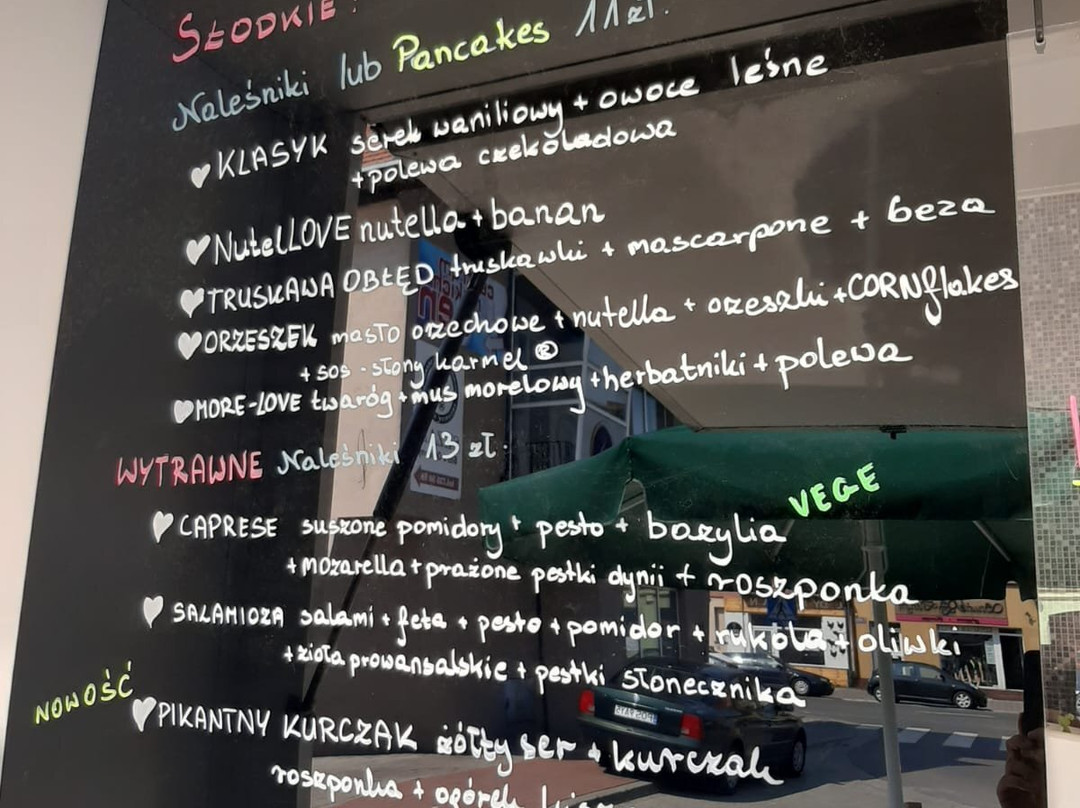 SŁODKIE:
Naleśniki lub Pancakes 11 zł.
KLASYK serek waniliowy + owoce leśne
+ polewa czekoladowa
NutelLOVE nutella + banan
TRUSKAWA OBŁĘD truskawki + mascarpone + beza
ORZESZEK masło orzechowe + nutella + orzeszki + CORNflakes
+ sos - słony karmel ®
MORE-LOVE twaróg + mus morelowy + herbatniki + polewa
WYTRAWNE Naleśniki 13 zł:
VEGE
CAPRESE suszone pomidory + pesto + bazylia
+ mozarella + prażone pestki dynii + roszponka
SALAMIOZA salami + feta + pesto + pomidor + rukola + oliwki
+ zioła prowansalskie + pestki słonecznika
NOWOŚĆ
PIKANTNY KURCZAK żółty ser + kurczak
roszponka + ogórek